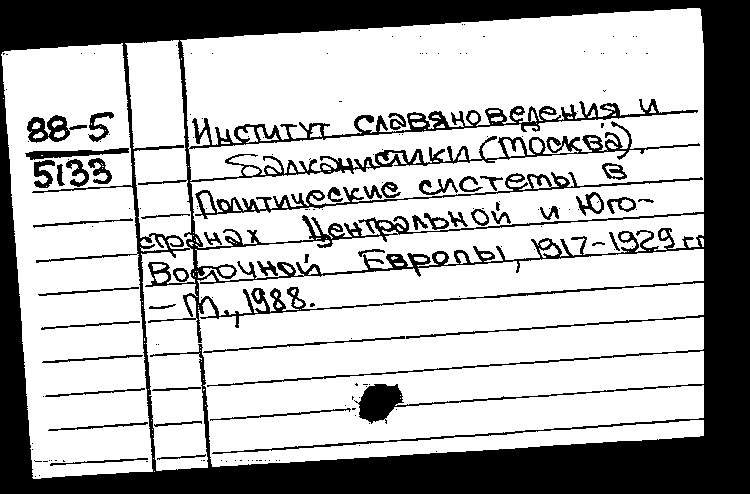 88-5
5133
Институт славяноведения и
балканистики (Москва).
Политические системы в
странах Центральной и Юго-
Восточной Европы, 1917-1929 гг
– М., 1988.